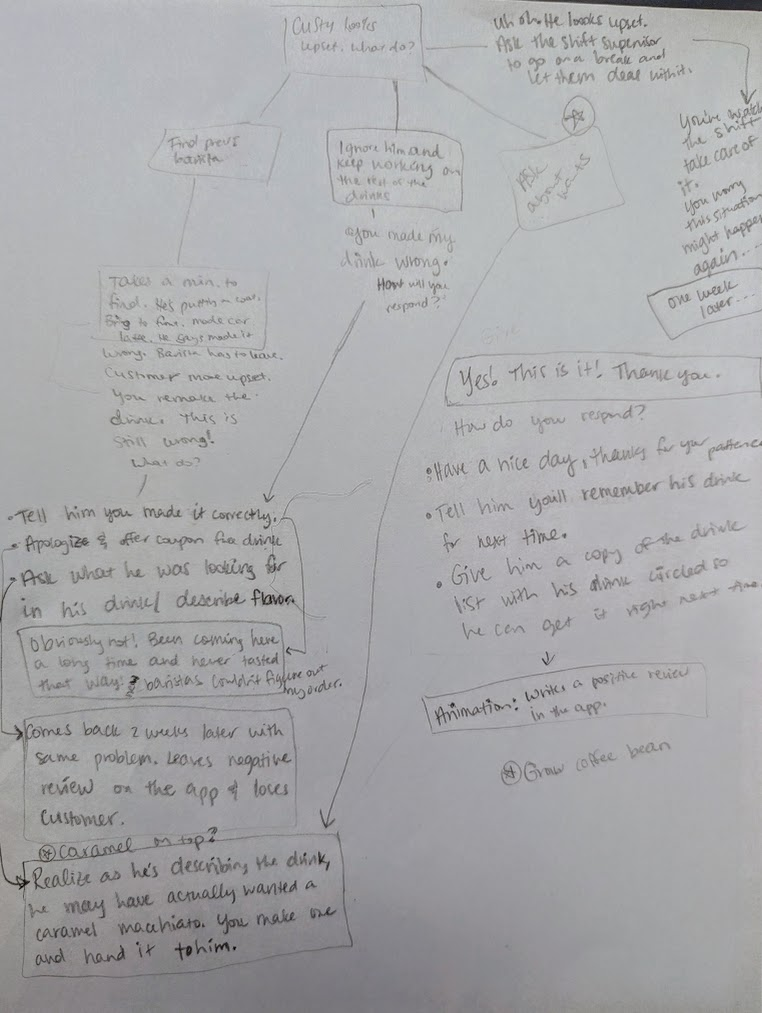 Custy looks
upset. What do?
Uh oh. He looks upset.
Ask the shift supervisor
to go on a break and
let them deal with it.
You're
the shift
take care of
it.
You worry
this situation
might happen
again....
one week
later...
Find prevs
barista
Ignore him and
keep working on
the rest of the
drinks
Ask
about
wants
you made my
drink wrong.
How will you
respond?
Takes a min. to
find. He's putting on coat.
to find. made car
latte. He says made it
wrong. Barista has to leave.
Customer more upset.
You remake the
drink. This is
still wrong!
What do?
• Tell him you made it correctly.
• Apologize & offer coupon free drink
• Ask what he was looking for
in his drink/ describe flavor.
Obviously not! Been coming here
a long time and never tasted
that way! 2 baristas couldn't figure out
my order.
Comes back 2 weeks later with
same problem. Leaves negative
review on the app & loses
customer.
Caramel on top?
Realize as he's describing the drink,
he may have actually wanted a
caramel macchiato. You make one
and hand it to him.
Give
Yes! This is it! Thank you.
How do you respond?
• Have a nice day, thanks for your patience
• Tell him you'll remember his drink
for next time.
• Give him a copy of the drink
list with his drink circled so
he can get it right next time
Animation: Writes a positive review
in the app.
Grow coffee bean